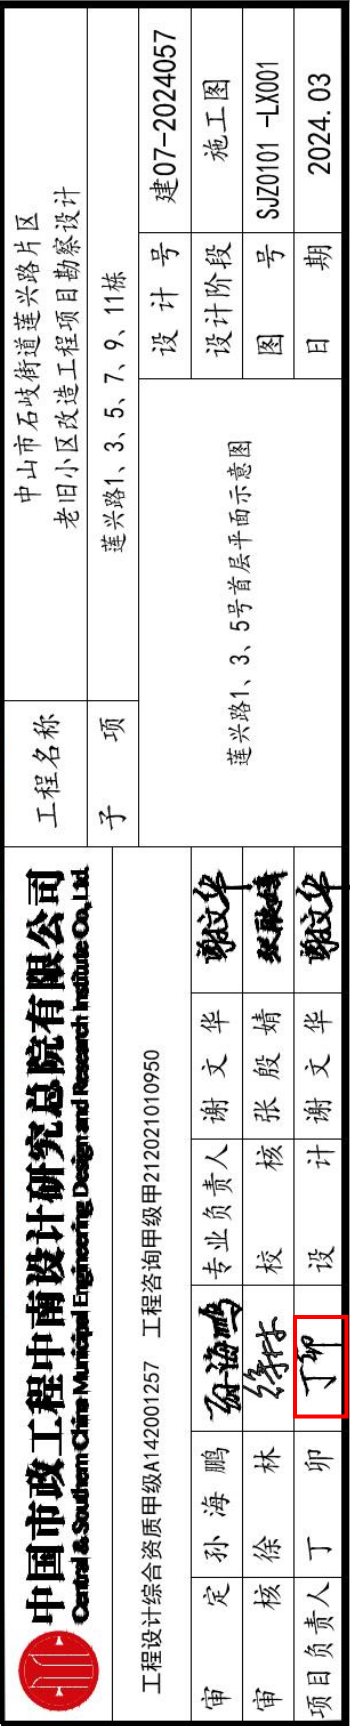 中国市政工程中南设计研究总院有限公司
Central & Southern China Municipal Engineering Design and Research Institute Co., Ltd.
工程设计综合资质甲级A142001257 工程咨询甲级甲212021010950
审 定 孙 海 鹏 孙海鹏 专业负责人 谢 文 华 谢文华
审 核 徐 林 徐林 校 核 张 殷 婧 张殷婧
项目负责人 丁 卯 丁卯 设 计 谢 文 华 谢文华
工程名称
中山市石岐街道莲兴路片区
老旧小区改造工程项目勘察设计
子 项 莲兴路1、3、5、7、9、11栋
莲兴路1、3、5号首层平面示意图
设 计 号 建07-2024057
设计阶段 施工图
图 号 SJZ0101 -LX001
日 期 2024.03